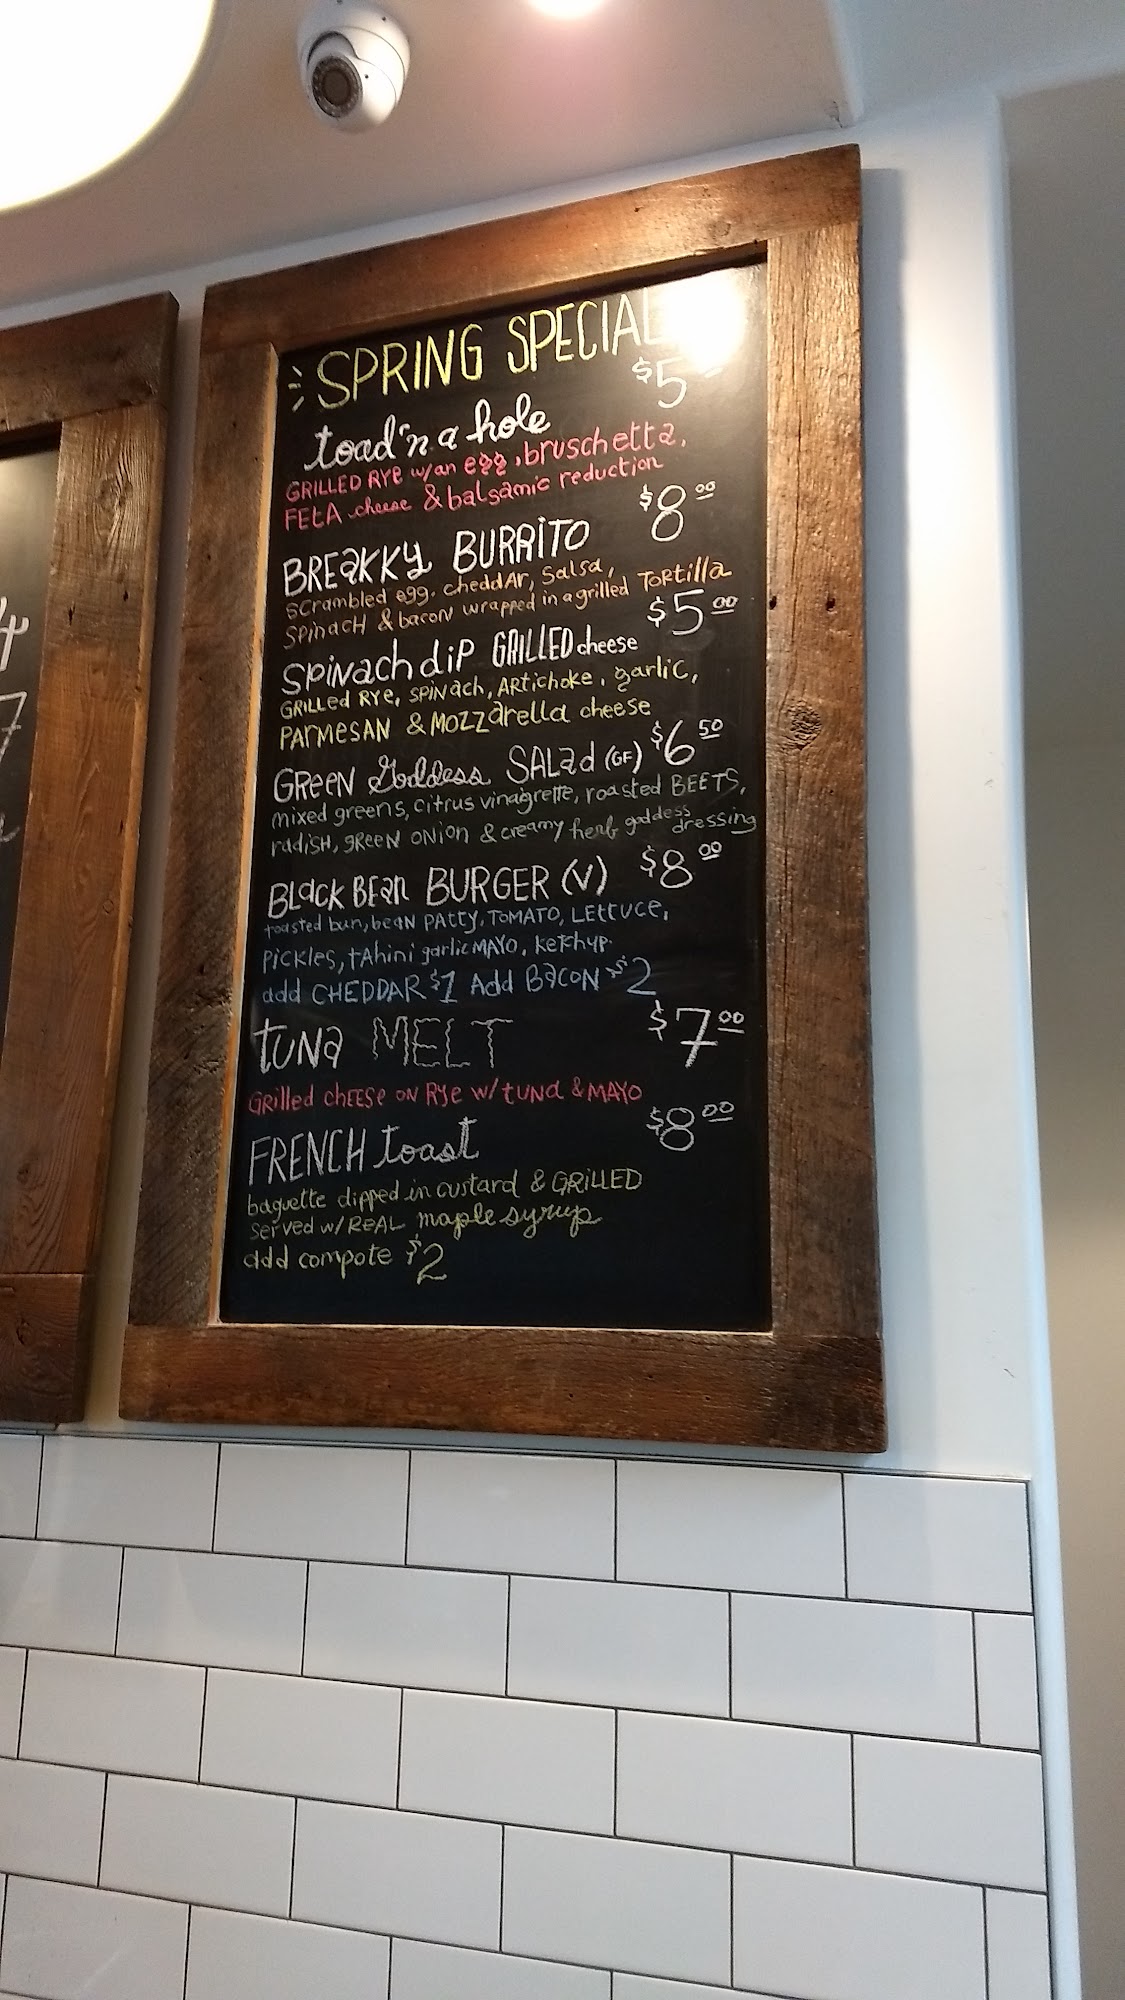 SPRING SPECIAL
toad'n a hole $5
GRILLED RYE w/an egg, bruschetta,
FETA cheese & balsamic reduction
BREAKKY BURRITO $8 00
scrambled egg, cheddar, salsa,
spinach & bacon wrapped in a grilled tortilla
Spinach dip GRILLED cheese $5 00
GRILLed RYe, SPINach, ARtichoke, garlic,
PARMESAN & MOZZarella cheese
GREEN Goddess SALad (GF) $6 50
mixed greens, citrus vinaigrette, roasted BEETS,
radish, green onion & creamy herb goddess dressing
BLack BEan BURGER (V) $8 00
toasted bun, bean patty, TOMATO, Lettuce,
pickles, tahini garlic MAYO, ketchup.
add CHEDDAR $1 Add Bacon $2
tuna MELT $7 00
Grilled cheese on Rye w/ tuna & MAYO
FRENCH toast $8 00
baguette dipped in custard & GRILLED
served w/ REAL maple syrup
add compote $2